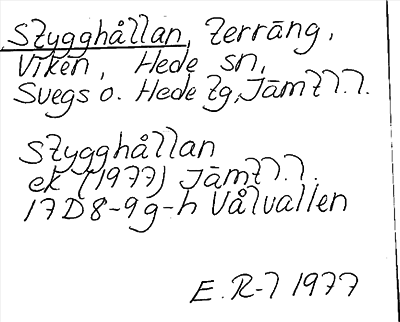 Stygghållan, terräng,
Viken, Hede sn,
Svegs o. Hede tg, Jämtl.l.
Stygghållan
ek (1977) Jämtl.l.
17D8-9g-h Vålvallen
E.R-l 1977